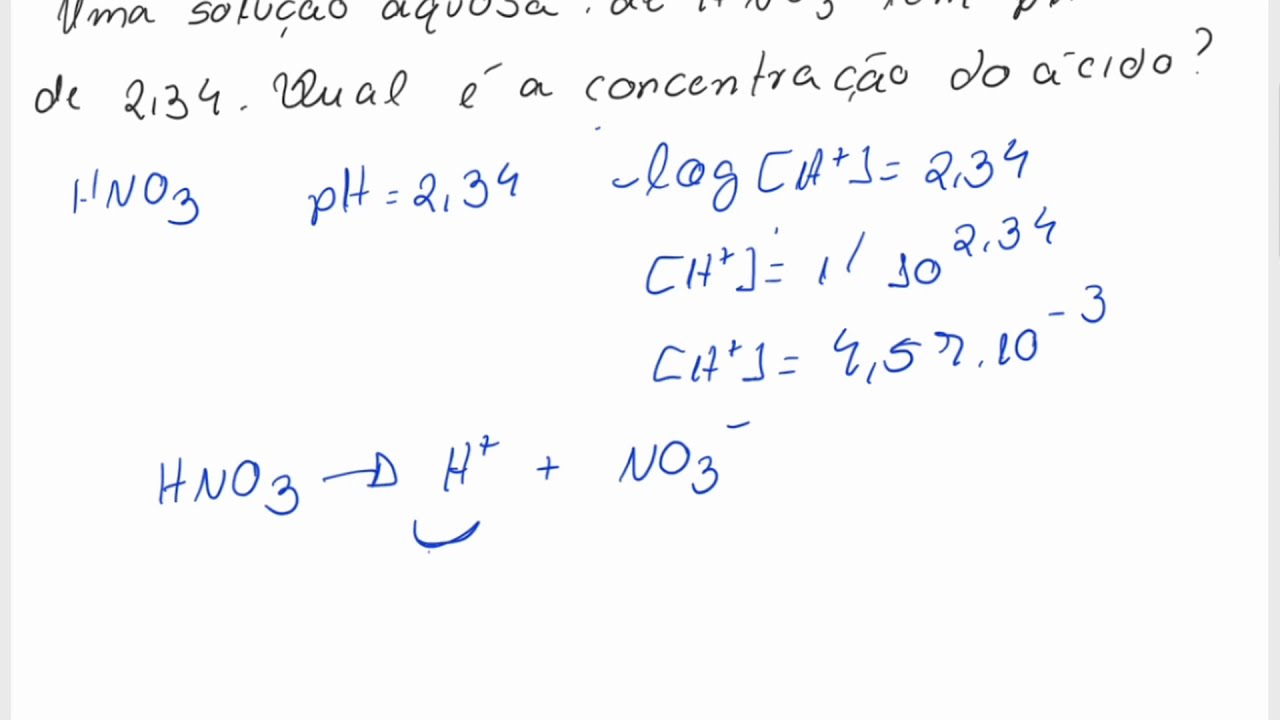 Uma solução aquosa de HNO3 tem pH
de 2,34. Qual é a concentração do ácido?
HNO3 pH = 2,34 -log [H+] = 2,34
[H+] = 1/ 10^2,34
[H+] = 4,57.10^-3
HNO3 → H+ + NO3-